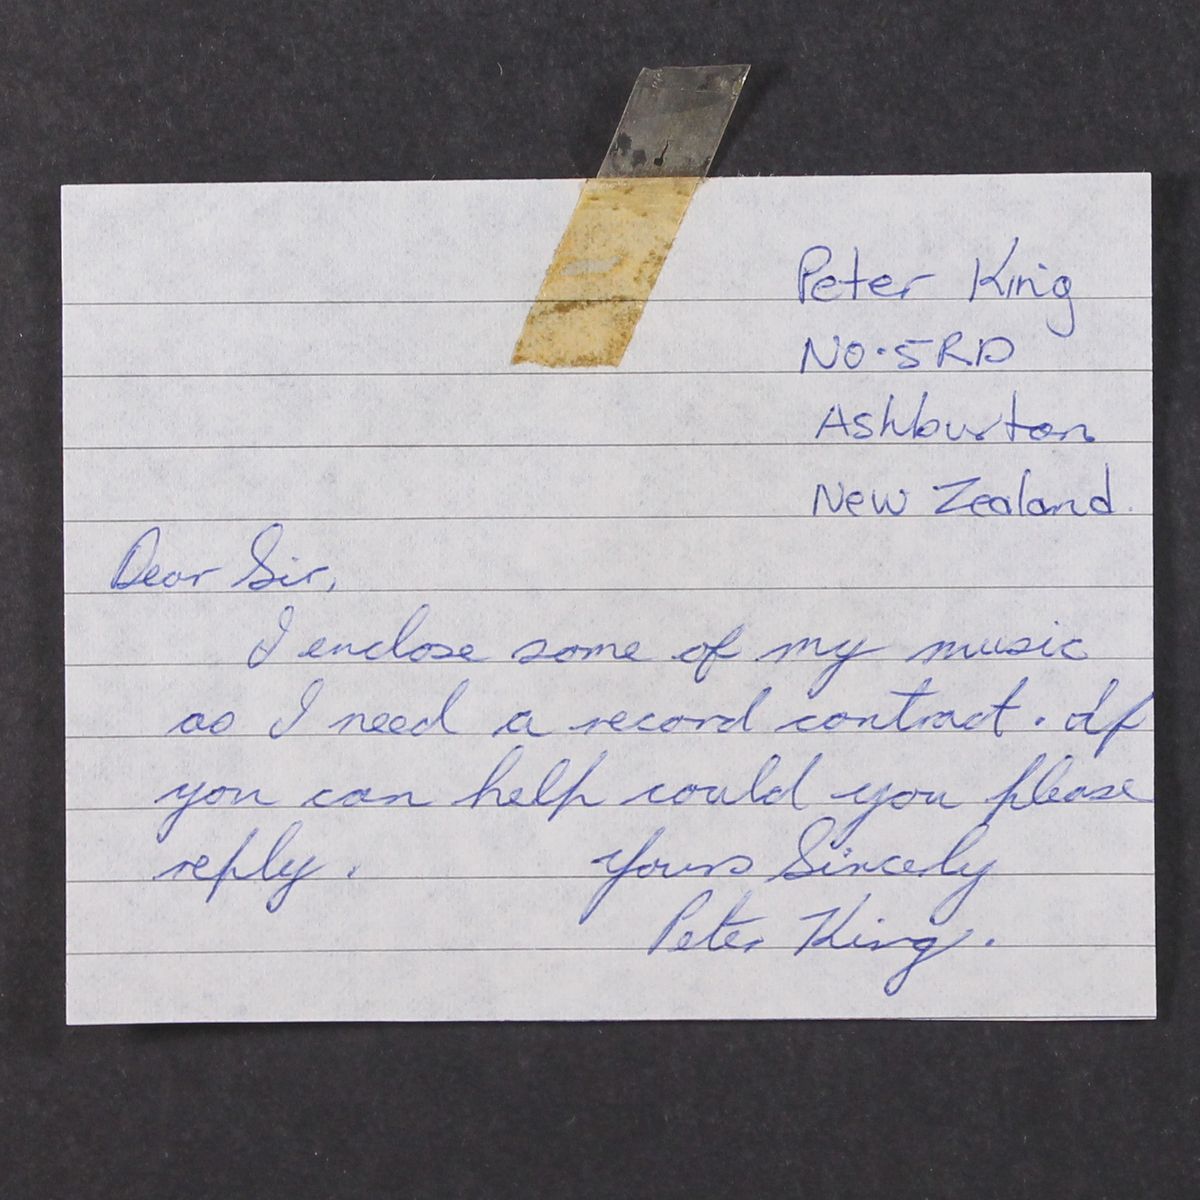 Peter King
No. 5 RD
Ashburton
New Zealand.
Dear Sir,
I enclose some of my music
as I need a record contract. If
you can help could you please
reply. Yours Sincerly
Peter King.